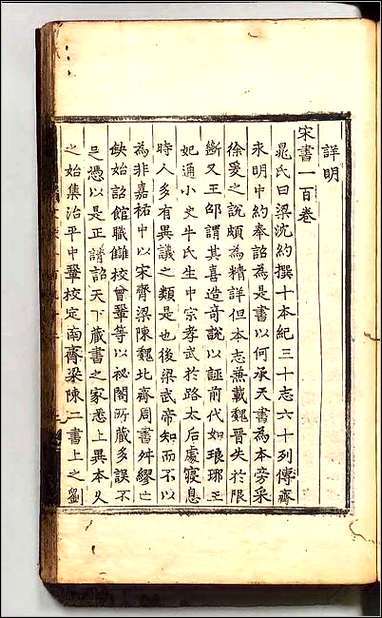 詳明
宋書一百卷
晁氏曰梁沈約撰十本紀三十志六十列傳齊
永明中約奉詔為是書以何承天書為本旁采
徐爰之說頗為精詳但本志兼載魏晉失於限
斷又王邵謂其喜造奇說以誣前代如琅琊王
妃通小史牛氏生中宗孝武於路太后處寢息
時人多有異議之類是也後梁武帝知而不以
為非嘉祐中以宋齊梁陳魏北齊周書舛繆亡
缺始詔館職讎校曾鞏等以祕閣所藏多誤不
足憑以是正請詔天下藏書之家悉上異本久
之始集治平中鞏校定南齊梁陳二書上之劉